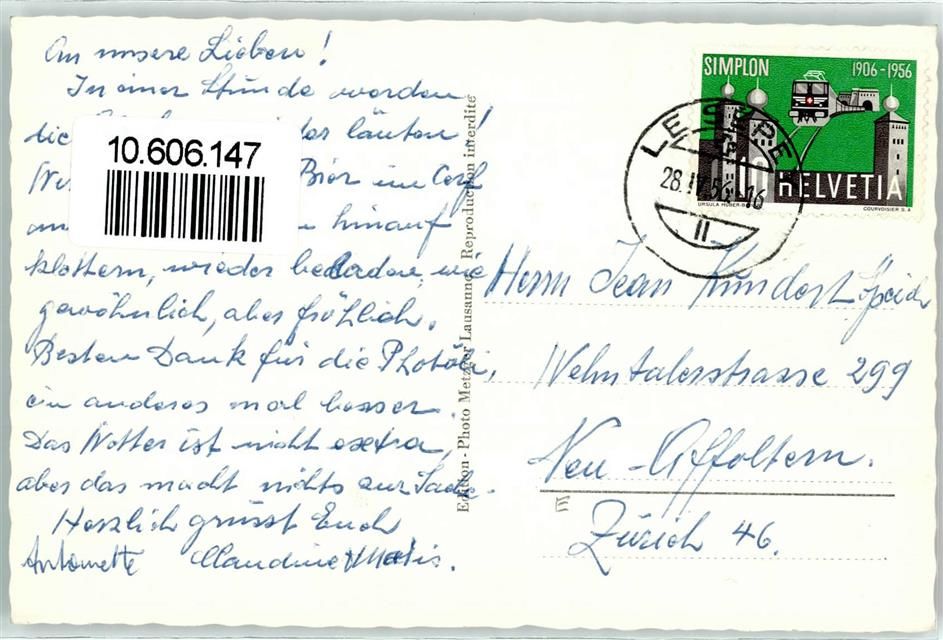 An unsere Lieben!
In einer Stunde werden
die läuten!
10.606.147
Bier im
hinauf
klettern, wieder beladen, wie
gewöhnlich, aber fröhlich.
Besten Dank für die Photöli,
ein anderes mal besser.
Das Wetter ist nicht extra,
aber das macht nichts zur Sache.
Herzlich grüsst Euch
Antoinette Claudine
Edition - Photo Metzger Lausanne Reproduction interdite
SIMPLON 1906-1956
HELVETIA
COURVOISIER S.A.
28.IV.56 -16
II
Herrn Jean Kundert
Wehntalerstrasse 299
Neu-Affoltern.
E
Zürich 46.